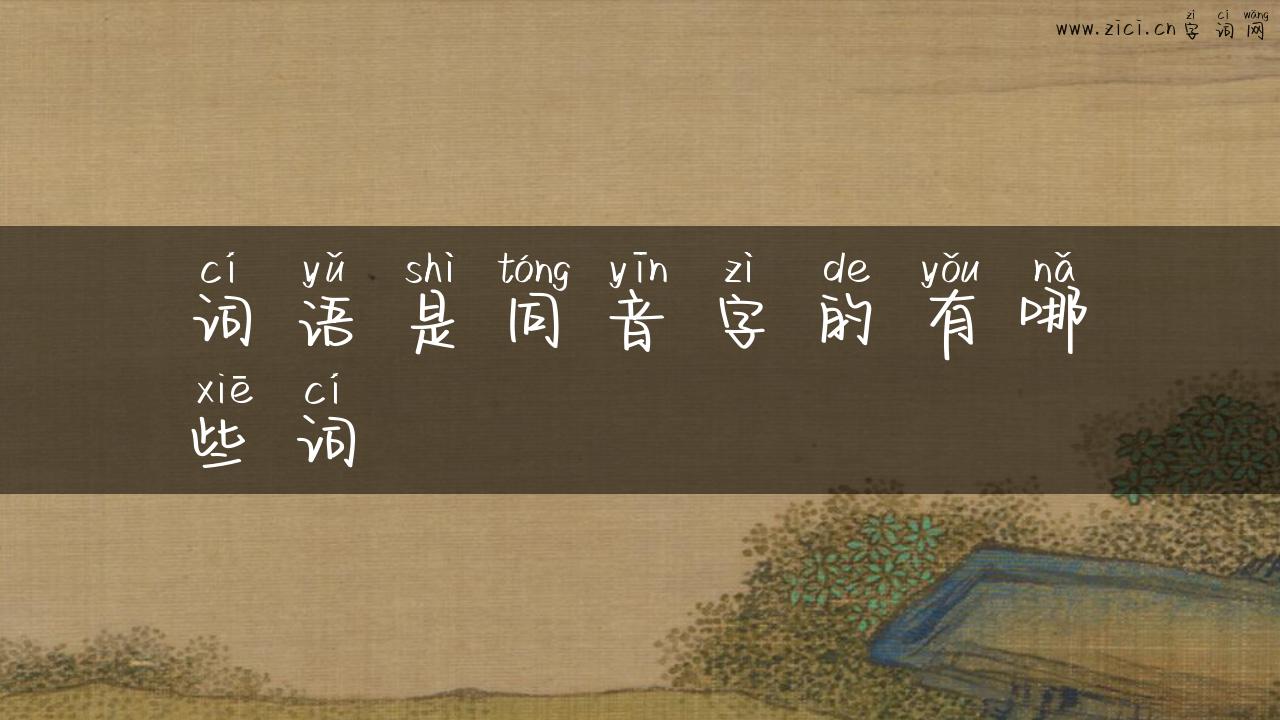 zì cí wǎng
www.zici.cn 字词网
cí yǔ shì tóng yīn zì de yǒu nǎ
词语是同音字的有哪
xiē cí
些词